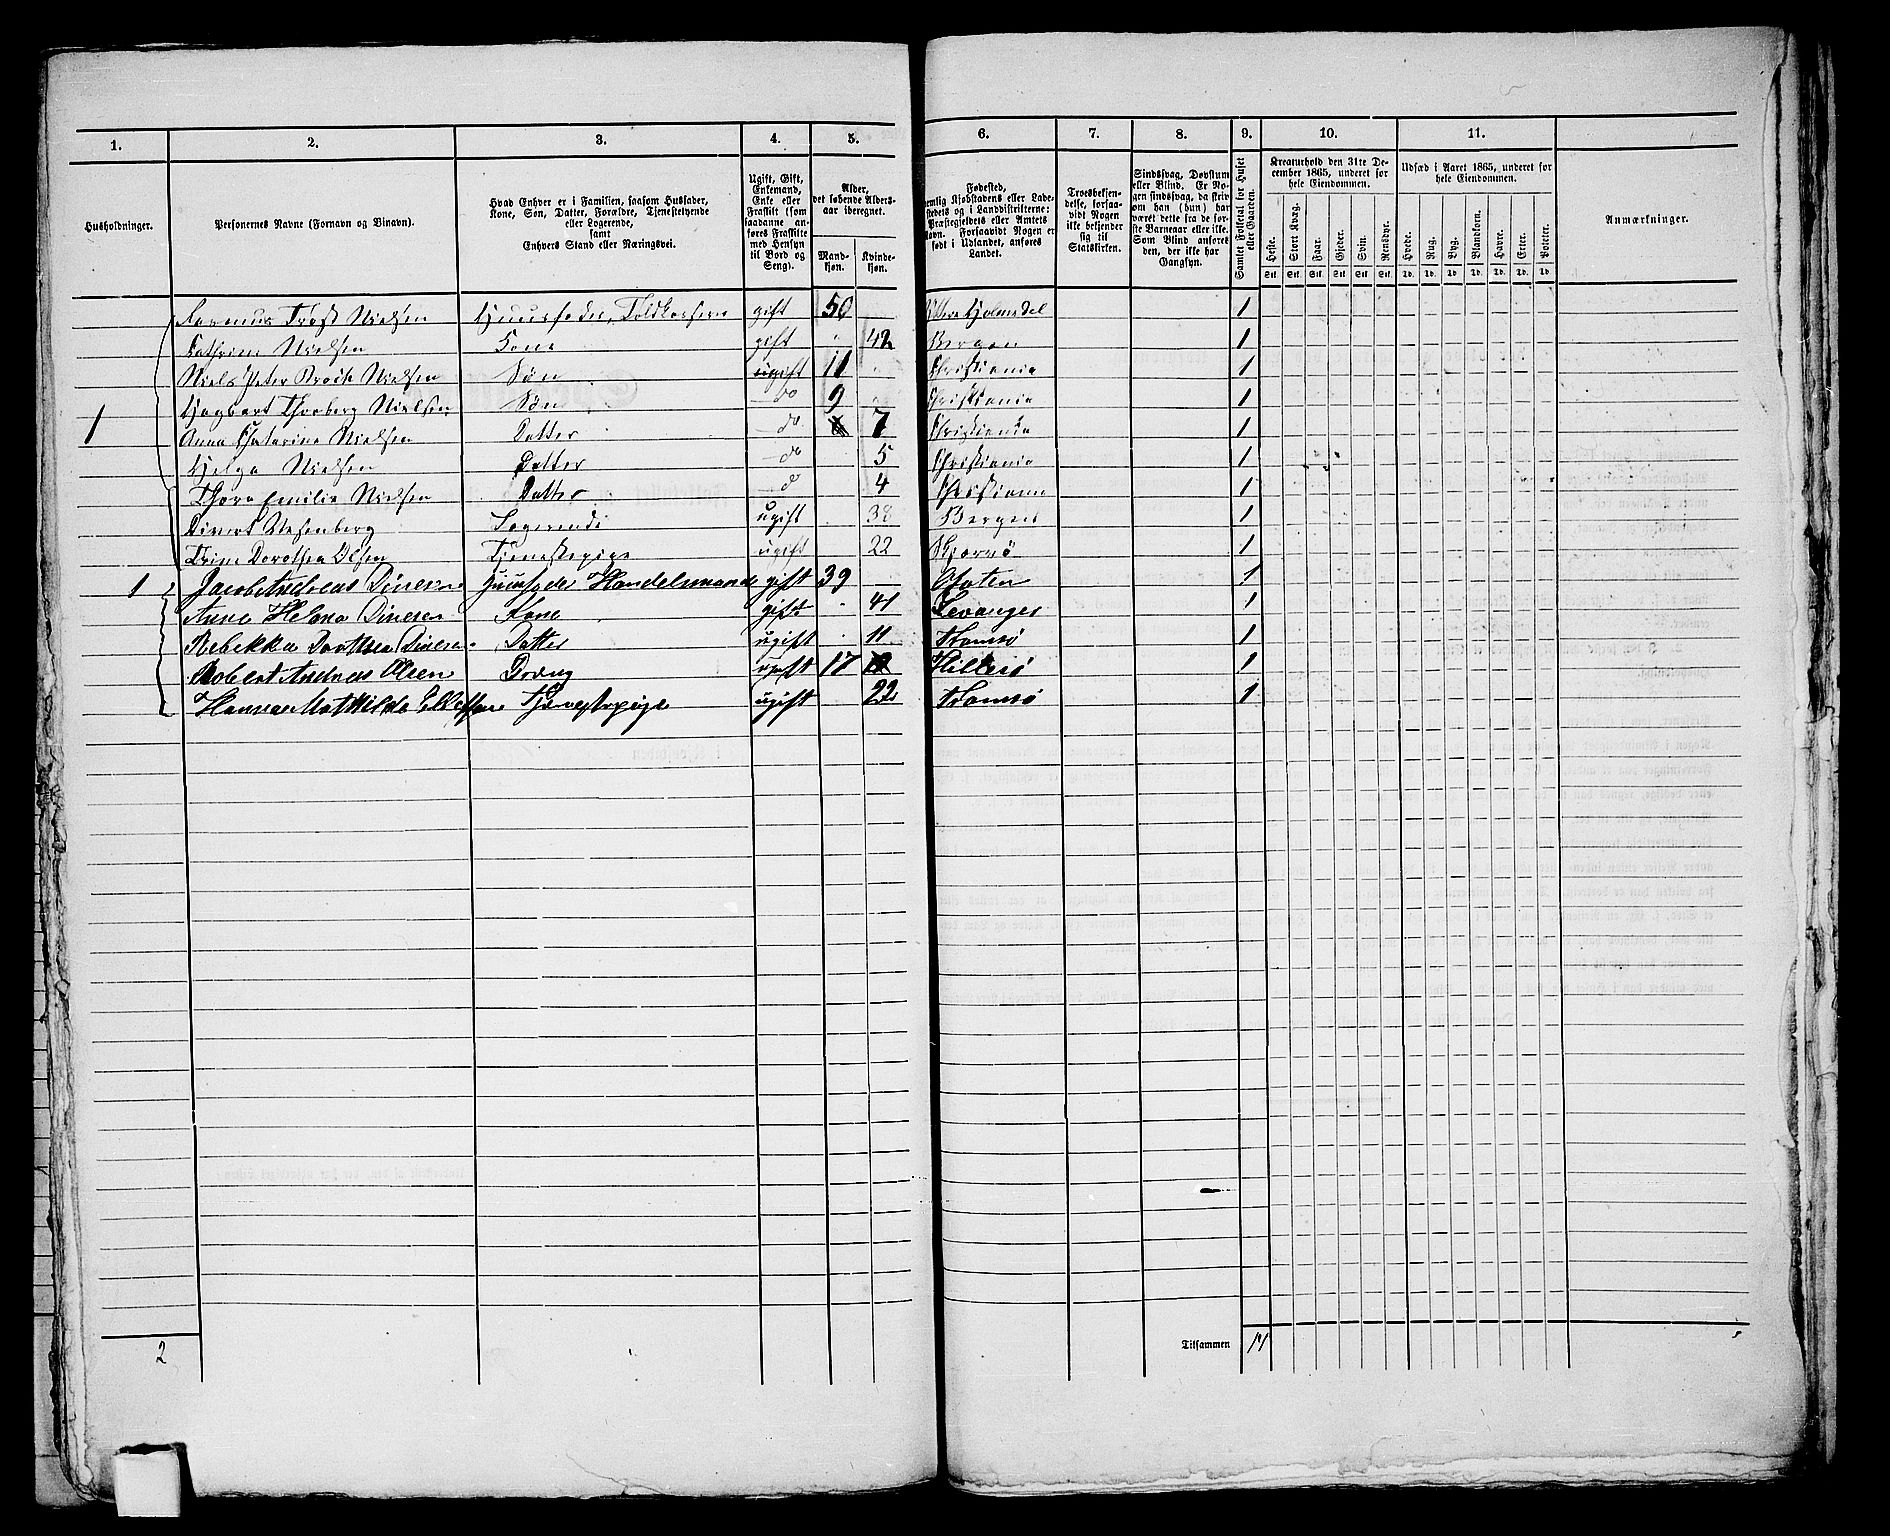 1. 2. 3. 4. 5. 6. 7. 8. 9. 10. 11.
Husholdninger.
Personernes Navne (Fornavn og Binavn).
Hvad Enhver er i Familien, saasom Husfader, Kone, Søn, Datter, Forældre, Tjenestetyende eller Logerende, samt Enhvers Stand eller Næringsvei.
Ugift, Gift, Enkemand, Enke eller Fraskilt (som saadanne anføres Fraskilte med Hensyn til Bord og Seng).
Alder, det løbende Aldersaar iberegnet.
Mandkjøn. Kvindekjøn.
Fødested, nemlig Kjøbstadens eller Ladestedets og i Landdistrikterne: Præstegjeldets eller Amtets Navn. Forsaavidt Nogen er født i Udlandet, anføres Landet.
Troesbekjendelse, forsaavidt Nogen ikke bekjender sig til Statskirken.
Sindssvag, Døvstum eller Blind. Er Nogen sindssvag, da skrives om han (hun) har været dette fra de første Barneaar eller ikke. Som Blind anføres den, der ikke har Gangsyn.
Samlet Folketal for Huset eller Gaarden.
Kreaturhold den 31te December 1865, underet for hele Eiendommen.
Heste. Stort Kvæg. Faar. Gjeder. Svin. Rensdyr.
Stk. Stk. Stk. Stk. Stk. Stk.
Udsæd i Aaret 1865, underet for hele Eiendommen.
Hvede. Rug. Byg. Blandkorn. Havre. Erter. Poteter.
Td. Td. Td. Td. Td. Td. Td.
Anmærkninger.
Rasmus Trost Nielsen Huusfader, Toldkasserer gift 50 1
Cathrine Nielsen Kone gift 42 Bergen 1
Niels Peter Brock Nielsen Søn ugift 11 Christiania 1
Hagbart Thorberg Nielsen Søn do 9 Christiania 1
1 Anna Catarina Nielsen Datter do 7 Christiania 1
Helga Nielsen Datter do 5 Christiania 1
Thora Emilie Nielsen Datter d 4 Christiania 1
Divert Logerende ugift 38 Bergen 1
Trine Dorothea Olsen Tjenestepige ugift 22 Skjærvø 1
1 Jacob Andreas Dinesen Huusfader Handelsmand gift 39 1
Anne Helena Dinesen Kone gift 41 Levanger 1
Rebekka Dorthea Dinesen Datter ugift 11 Tromsø 1
Robert Andreas Olsen Dreng ugift 17 Hillesø 1
Hansine Mathilda Ellefsen Tjenestepige ugift 22 Tromsø 1
2 Tilsammen 14